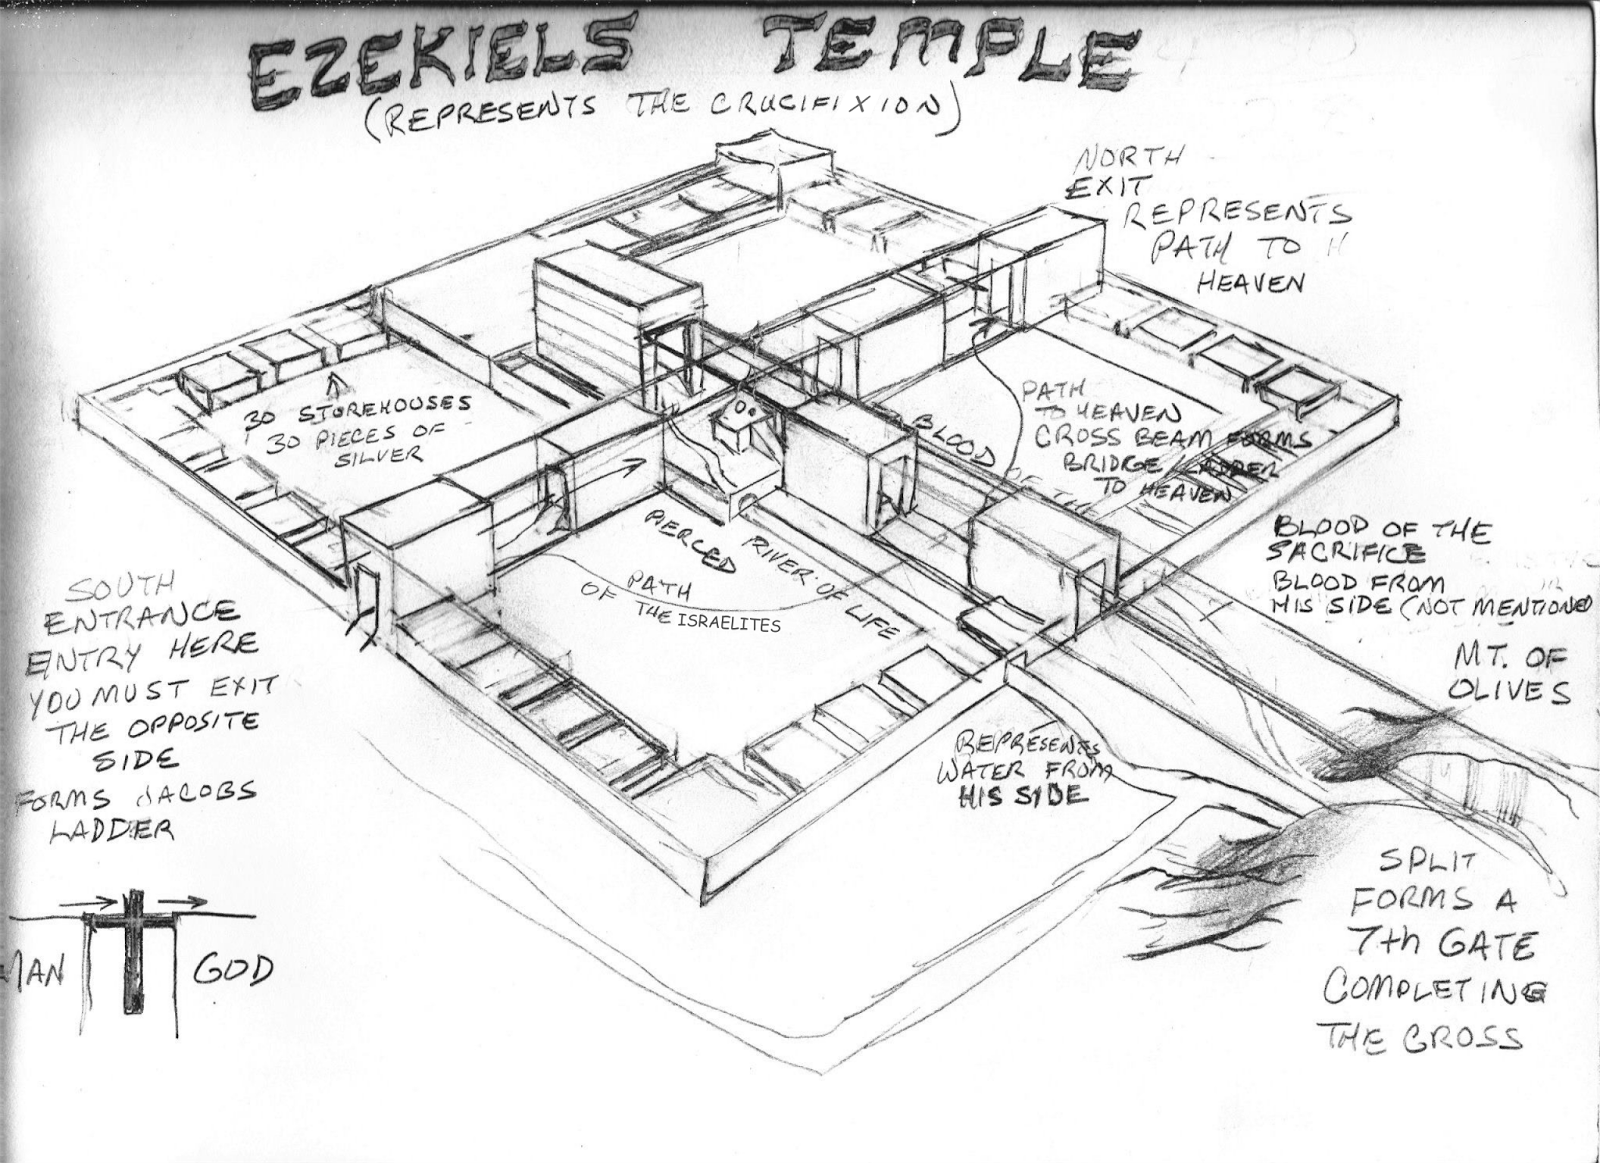 EZEKIELS TEMPLE
(REPRESENTS THE CRUCIFIXION)
NORTH
EXIT
REPRESENTS
PATH TO H
HEAVEN
30 STOREHOUSES
30 PIECES OF
SILVER
PATH
TO HEAVEN
CROSS BEAM FORMS
BRIDGE/LADDER
TO HEAVEN
BLOOD OF THE
PIERCED
RIVER OF LIFE
PATH
OF THE ISRAELITES
BLOOD OF THE
SACRIFICE
BLOOD FROM
HIS SIDE (NOT MENTIONED
MT. OF
OLIVES
SOUTH
ENTRANCE
ENTRY HERE
YOU MUST EXIT
THE OPPOSITE
SIDE
FORMS JACOBS
LADDER
REPRESENTS
WATER FROM
HIS SIDE
SPLIT
FORMS A
7th GATE
COMPLETING
THE CROSS
MAN GOD